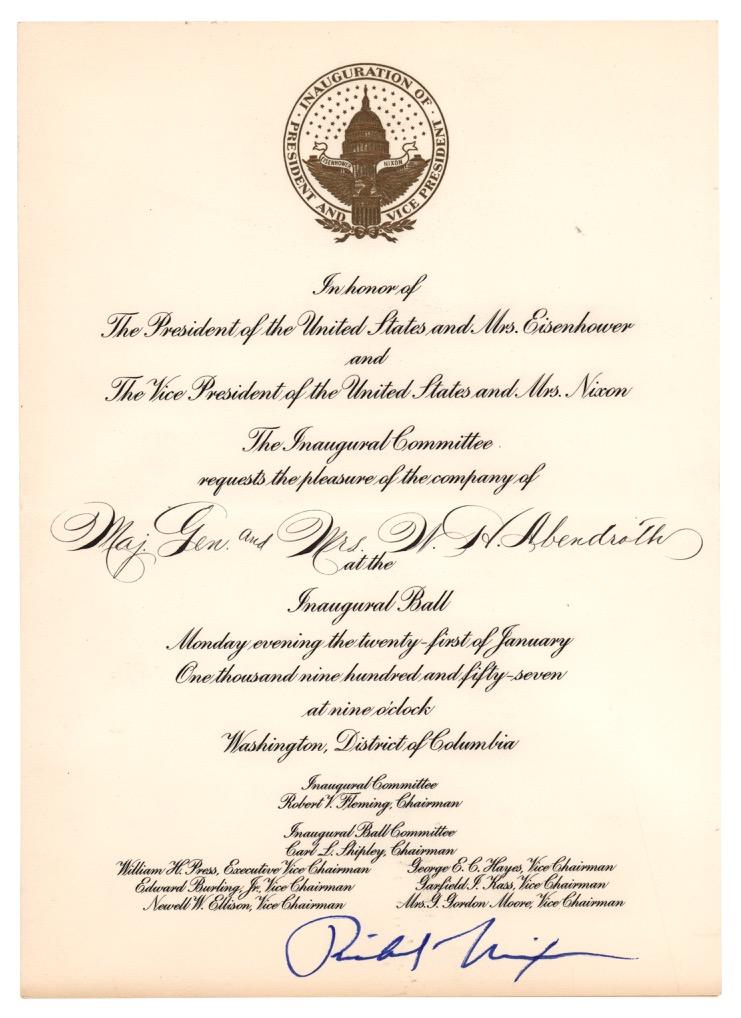 · INAUGURATION OF · PRESIDENT AND VICE PRESIDENT
EISENHOWER NIXON
In honor of
The President of the United States and Mrs. Eisenhower
and
The Vice President of the United States and Mrs. Nixon
The Inaugural Committee
requests the pleasure of the company of
Maj. Gen. and Mrs. W. H. Abendroth
at the
Inaugural Ball
Monday evening the twenty-first of January
One thousand nine hundred and fifty-seven
at nine o'clock
Washington, District of Columbia
Inaugural Committee
Robert V. Fleming, Chairman
Inaugural Ball Committee
Carl L. Shipley, Chairman
William H. Press, Executive Vice Chairman
Edward Burling, Jr., Vice Chairman
Newell W. Ellison, Vice Chairman
George E. C. Hayes, Vice Chairman
Garfield I. Kass, Vice Chairman
Mrs. J. Gordon Moore, Vice Chairman
Richard Nixon